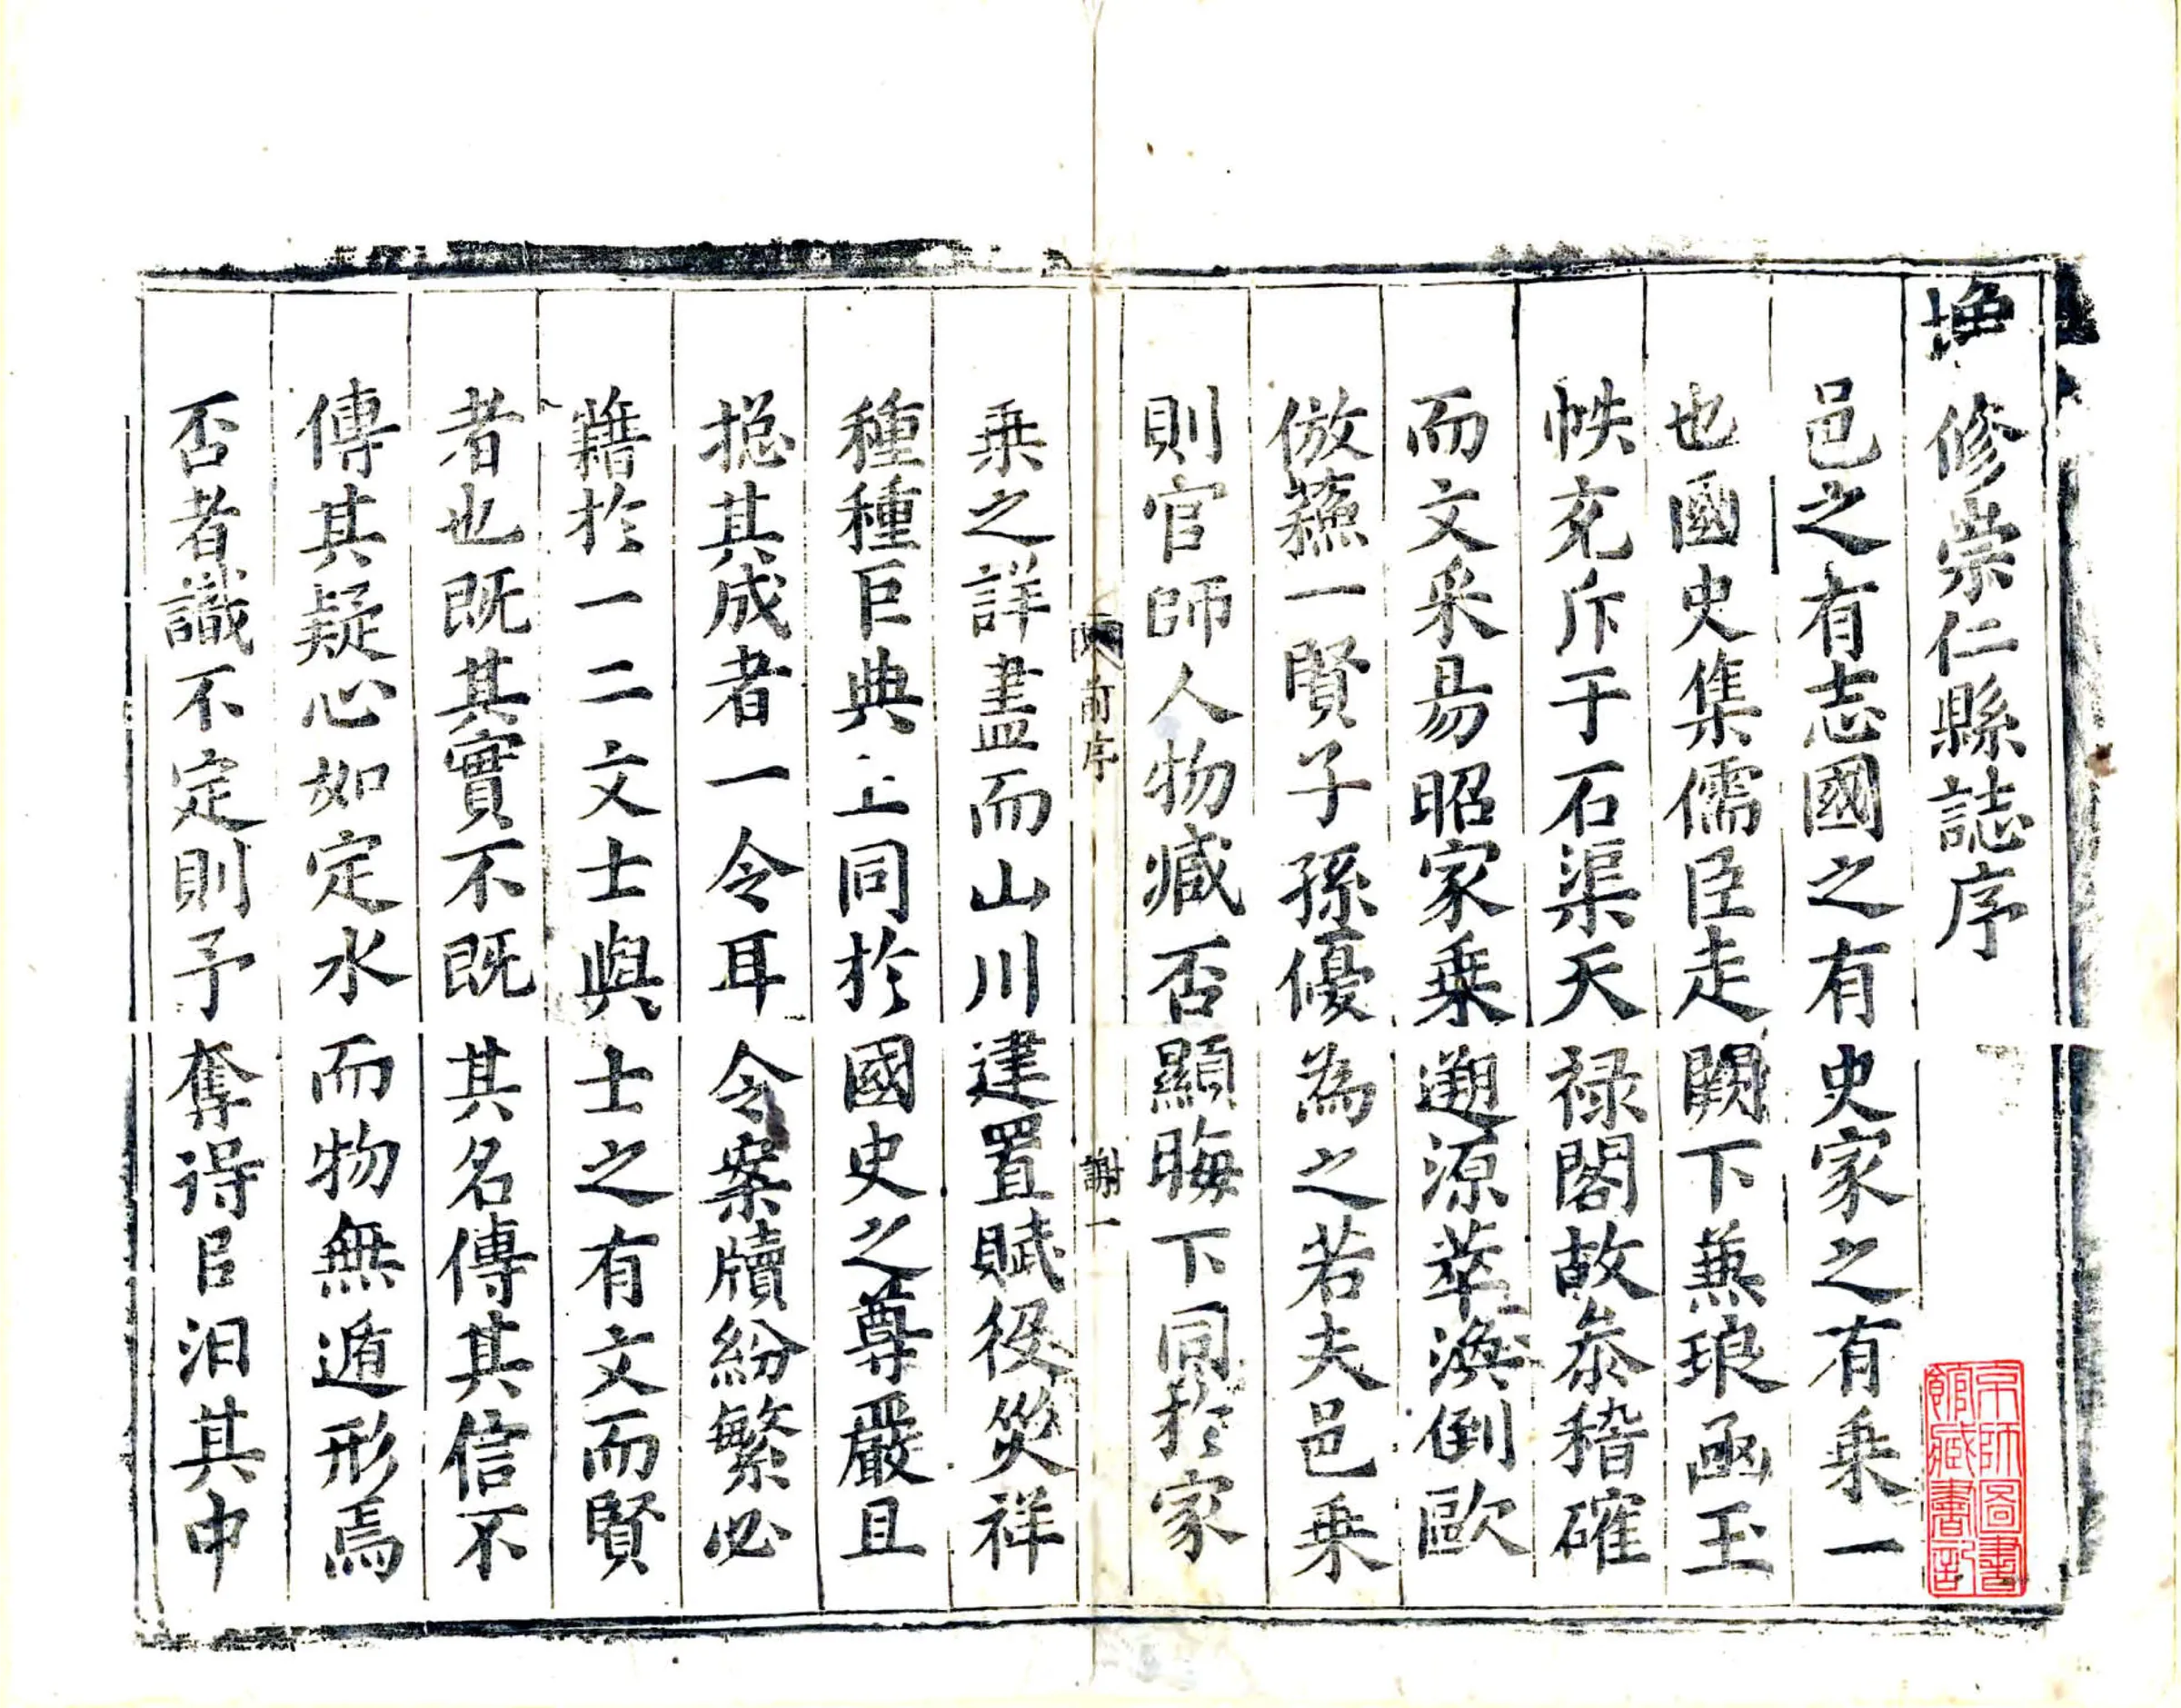 修崇仁縣誌序
邑之有志國之有史家之有乗一
也國史集儒臣走闕下蒹琅函玉
帙充斥于石渠天禄閣故叅稽確
而文采易昭家乗遡源萃渙倒歐
倣蘓一賢子孫優為之若夫邑乗
則官師人物臧否顯晦下同於家
乗之詳盡而山川建置賦役災祥
種種巨典上同於國史之尊嚴且
揔其成者一令耳令案牘紛繁必
藉於一二文士與士之有文而賢
者也既其實不既其名傳其信不
傳其疑心如定水而物無遁形焉
否者識不定則予奪得㠯汨其中
前序
謝一
京師圖書
館藏書記